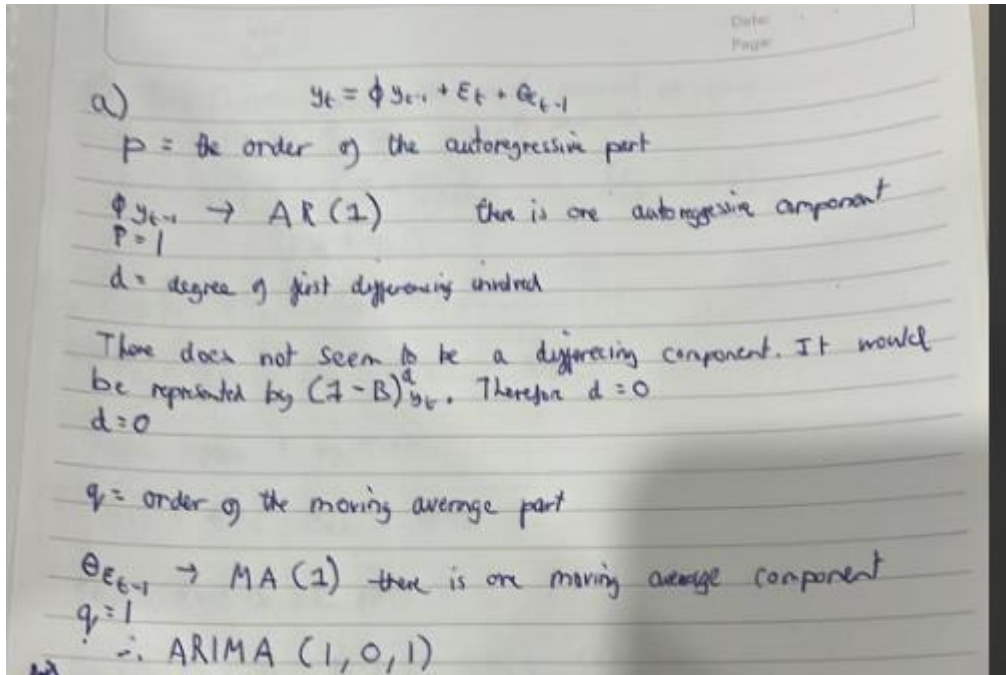 Date:
Page:
a) yₜ = ϕ yₜ₋₁ + εₜ + θεₜ₋₁
p = the order of the autoregressive part
ϕ yₜ₋₁ → AR (1) there is one autoregressive component
P = 1
d = degree of first differencing involved
There does not seem to be a differencing component. It would
be represented by (1 - B)ᵈyₜ. Therefore d = 0
d = 0
q = order of the moving average part
θεₜ₋₁ → MA (1) there is one moving average component
q = 1
∴ ARIMA (1, 0, 1)